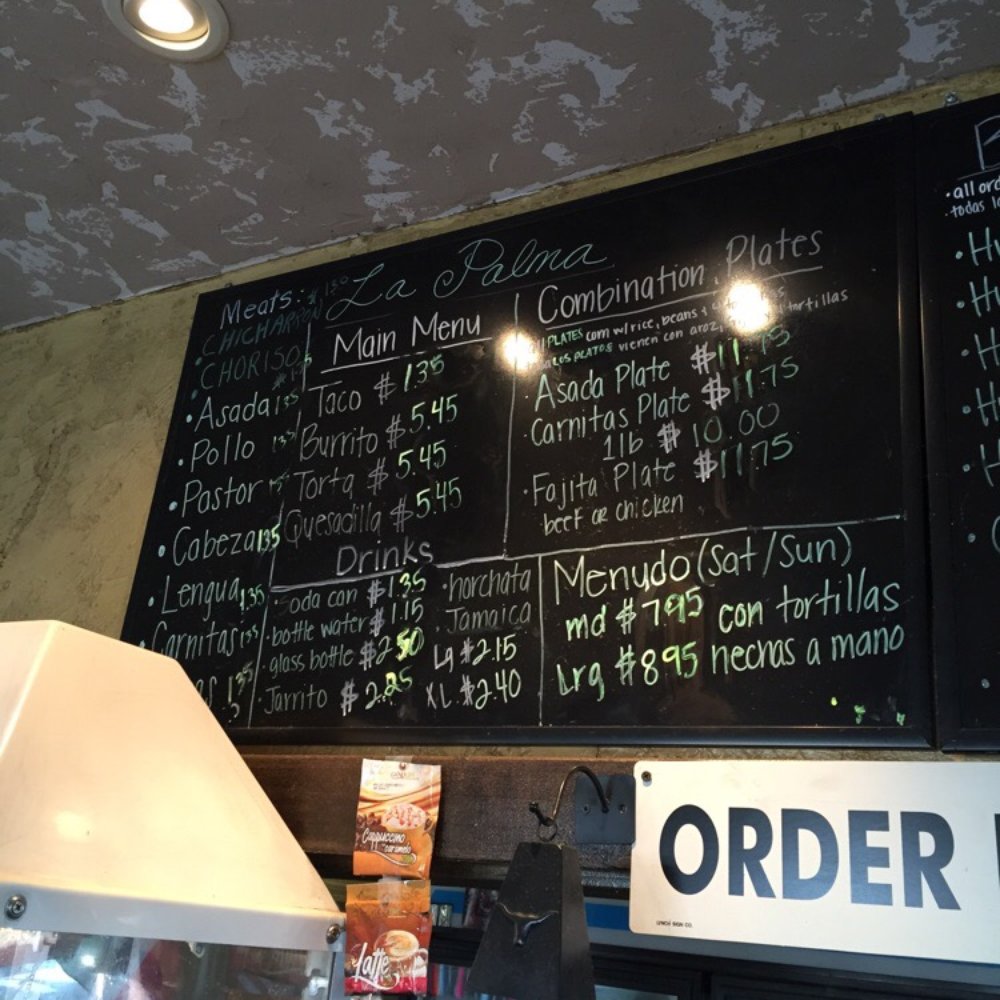 La Palma
Meats:
CHICHARRON
CHORISO
• Asada 1.35
• Pollo 1.35
• Pastor
• Cabeza 1.35
• Lengua 1.35
Carnitas 1.35
1.35
Main Menu
Taco $1.35
Burrito $5.45
Torta $5.45
Quesadilla $5.45
Drinks
Soda can $1.35
• bottle water $1.15
• glass bottle $2.50
Jarrito $2.25
• horchata
Jamaica
Lg $2.15
XL $2.40
Combination Plates
PLATES com w/rice, beans &
LOS PLATOS vienen con aroz, tortillas
• Asada Plate $11.75
• Carnitas Plate $11.75
1lb $10.00
• Fajita Plate $11.75
beef or chicken
Menudo (Sat/Sun)
md $7.95 con tortillas
Lrg $8.95 hechas a mano
• all ord
todas l
• H
• H
• H
• H
• H
Cappuccino
caramelo
Latte
ORDER
LYNCH SIGN CO.